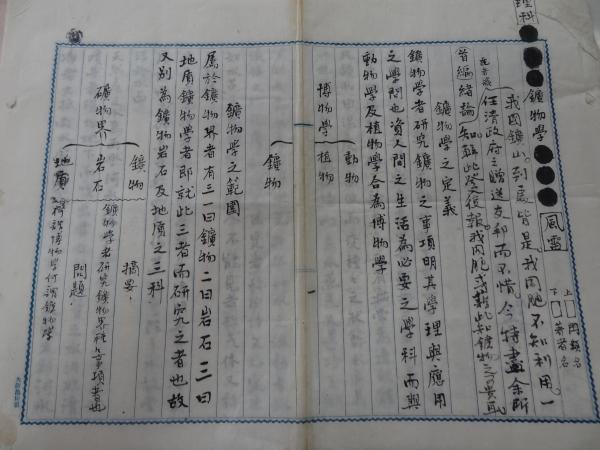 理科
●●●●●●
鑛物學
風雷
上 同類名
下 著者名
我國鑛山到處皆是我國胞不知利用一
任清政府之贈送友邦而不惜今特盡余所
普編緒論知
鑛物學之定義
鑛物學者研究鑛物之事項明其學理與應用
之學問也資人間之生活為必要之學科而與
動物學及植物學合為博物學
動物
博物學 植物
鑛物
鑛物學之範圍
屬於鑛物界者有三一曰鑛物二曰岩石三曰
地質鑛物學者即就此三者而研究之者也故
又別為鑛物岩石及地質之三科
鑛物
礦物界 岩石
地質
摘要
鑛物學者研究鑛物界種々事項者也
問題
何謂鑛物學